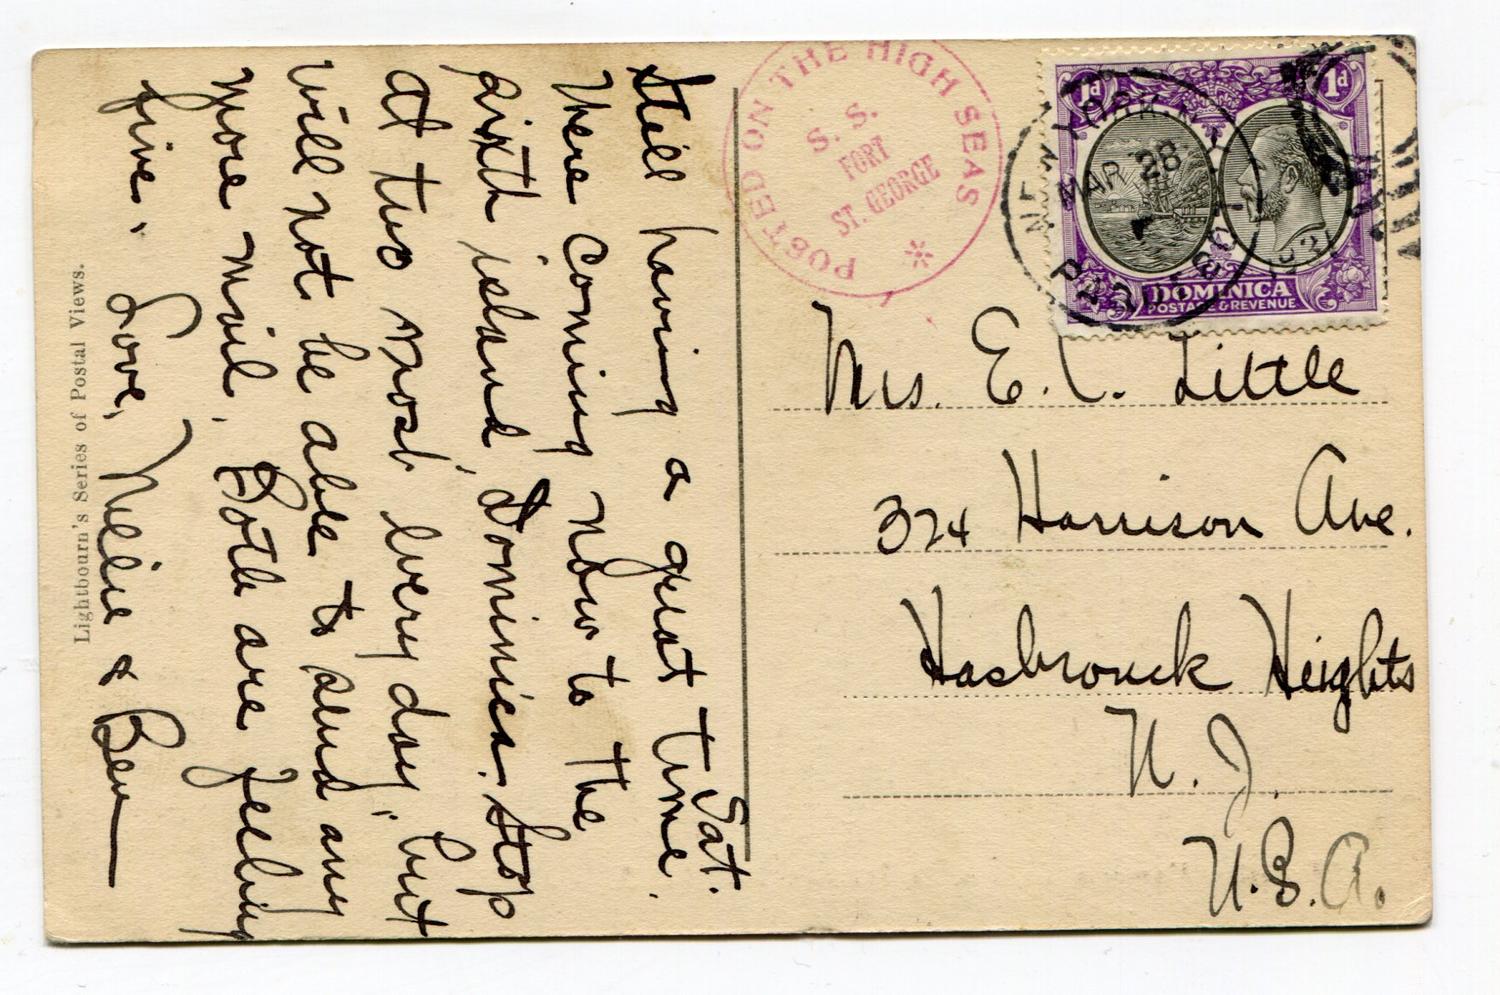 Sat.
Still having a great time.
Were coming now to the
sixth island, Dominica. Stop
at two most every day, but
will not be able to send any
more mail. Both are feeling
fine. Love, Nellie & Ben
Lightbourn's Series of Postal Views.
POSTED ON THE HIGH SEAS
S. S.
FORT
ST. GEORGE
1d 1d
DOMINICA
POSTAGE & REVENUE
NEW YORK, N.Y.
MAR 28
PAQUEBOT
Mrs. E. C. Little
324 Harrison Ave.
Hasbrouck Heights
N. J.
U.S.A.